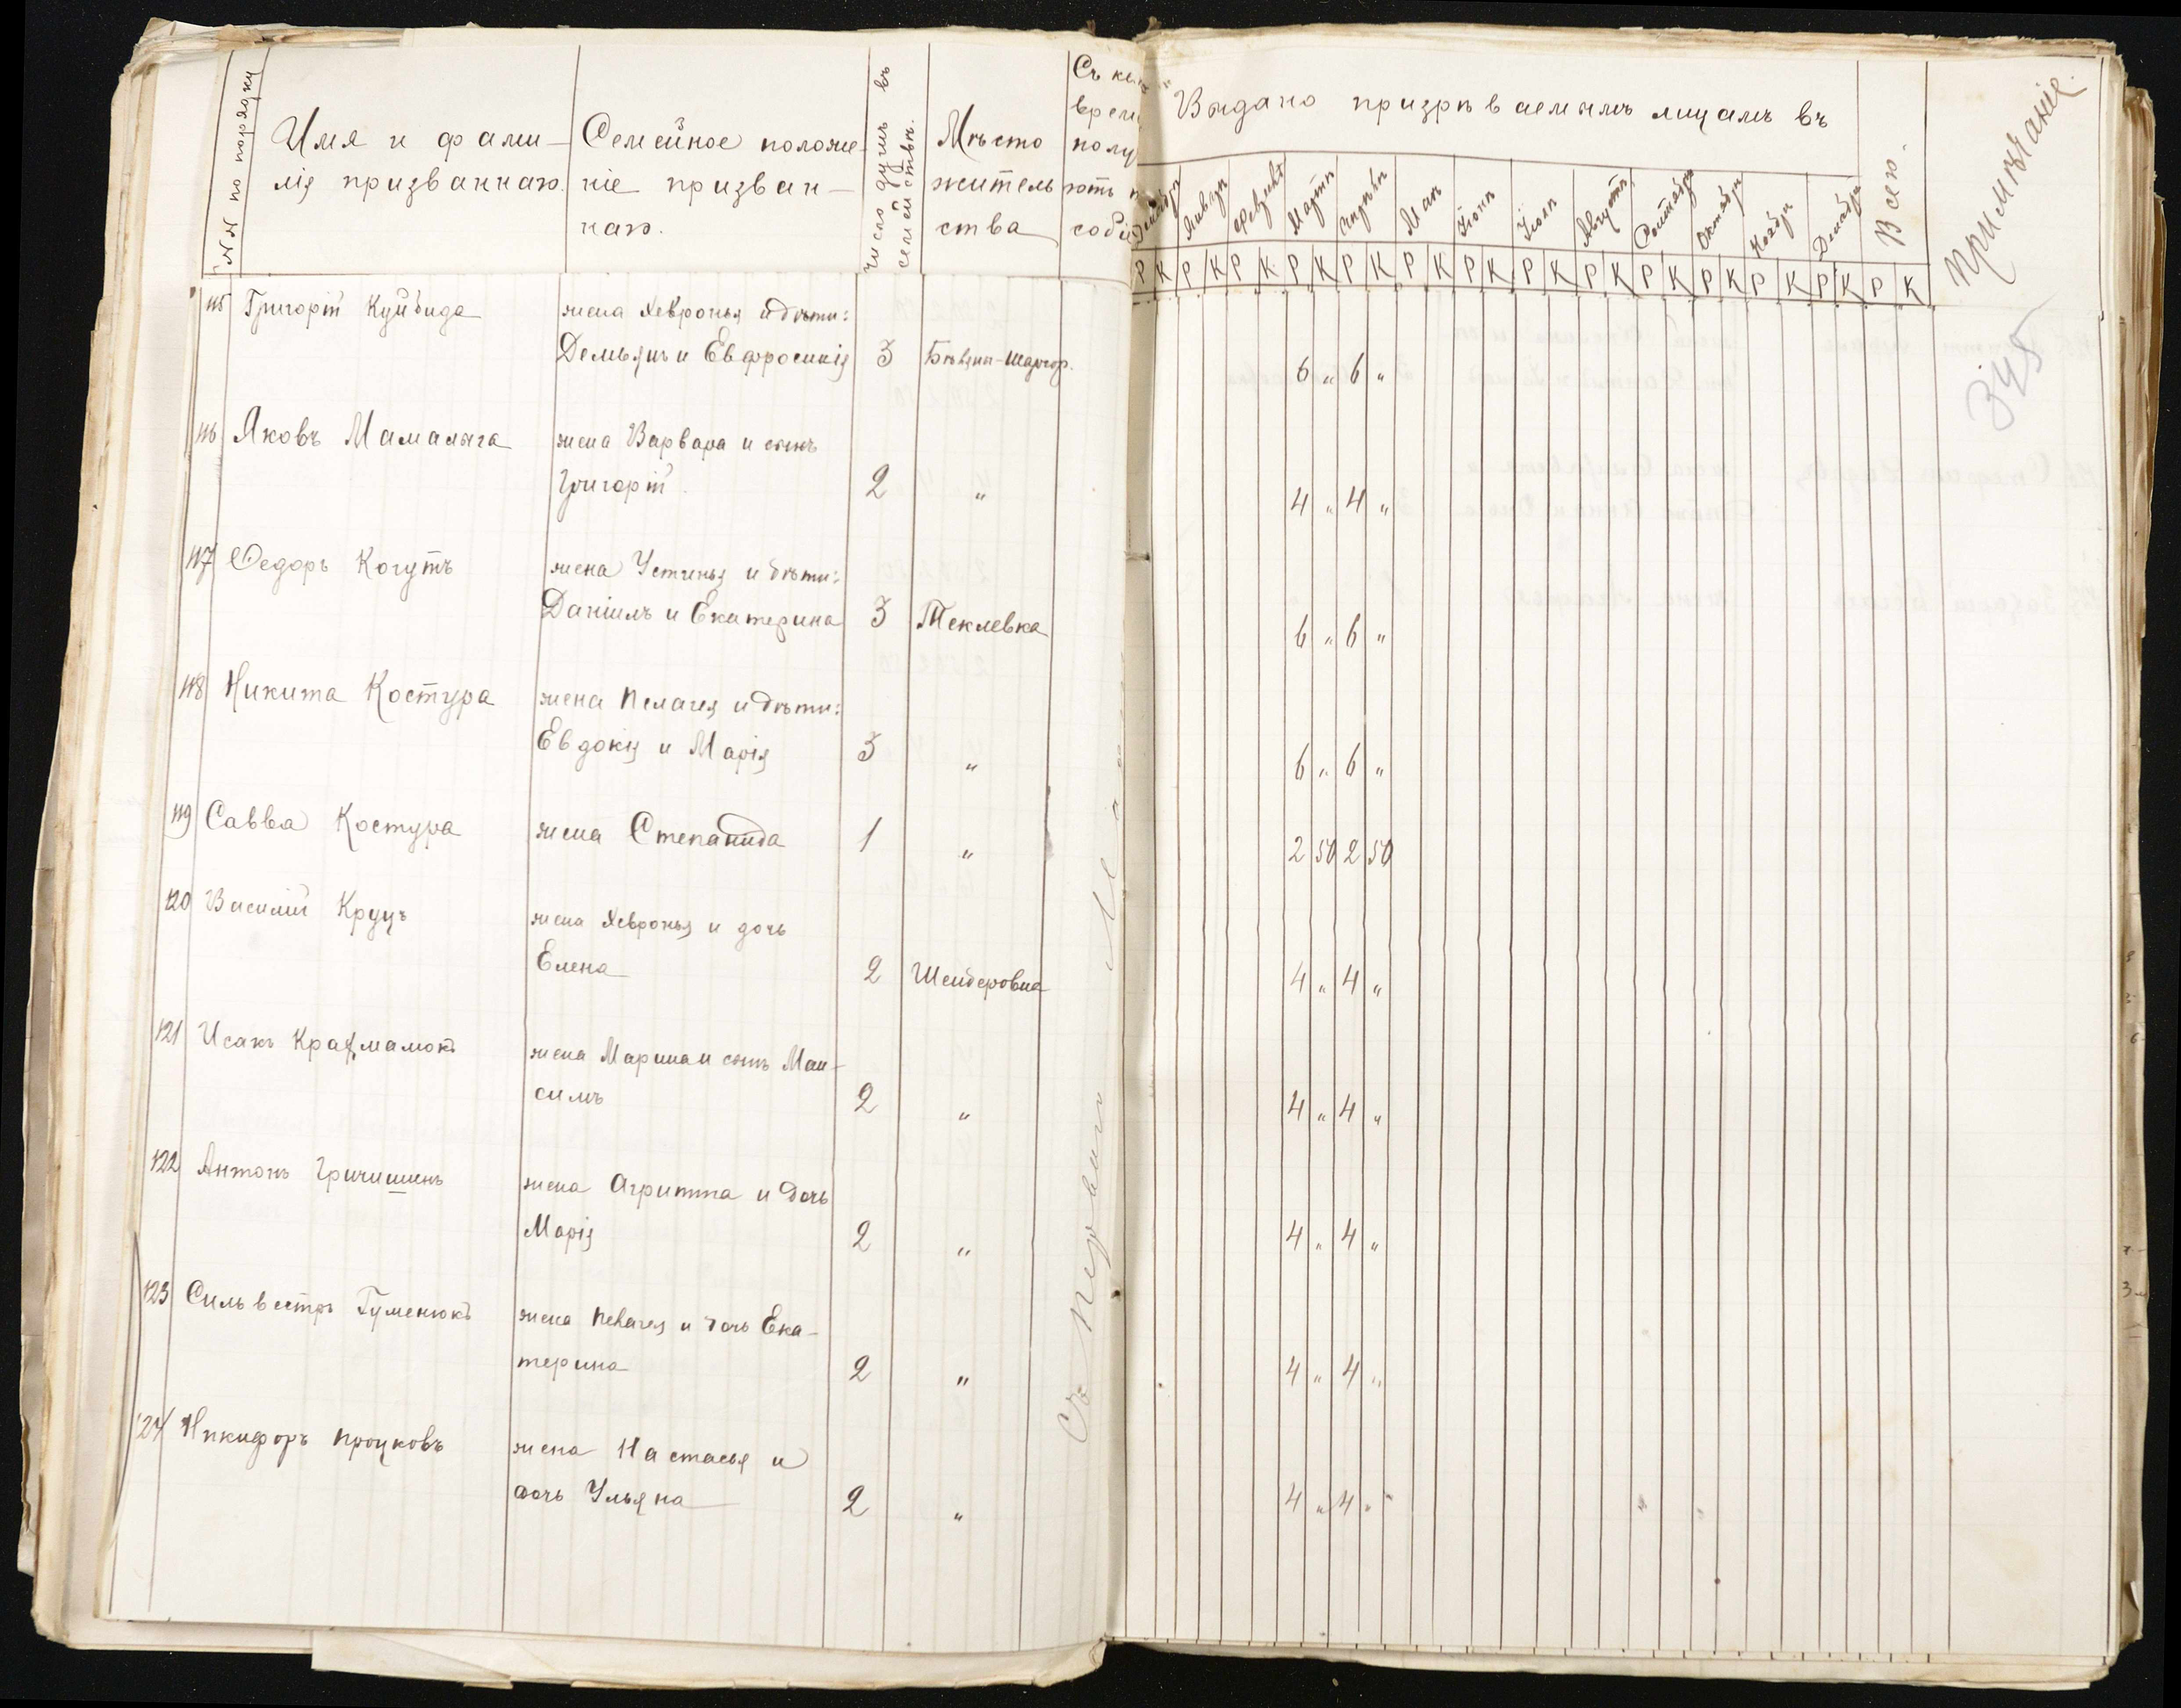 №№ по порядку
Имя и фами-
лія призваннаго.
Семейное положе-
ніе призван-
наго.
Число душъ въ
семействѣ.
Мѣсто
житель
ства
Съ
врем
полу
ютъ
собі
Выдано призрѣваемымъ лицамъ въ
Январь Февраль Мартъ Апрѣль Май Іюнь Іюль Августъ Сентябрь Октябрь Ноябрь Декабрь
Всего.
Примѣчаніе.
Р К Р К Р К Р К Р К Р К Р К Р К Р К Р К Р К Р К Р К Р К
345
115 Григорій Куйбида жена Хевронья и дѣти:
Демьянъ и Евфросинія 3 6 „ 6 „
116 Яковъ Мамалыга жена Варвара и сынъ
Григорій. 2 „ 4 „ 4 „
117 Федоръ Когутъ жена Устинья и дѣти:
Даніилъ и Екатерина 3 Теклевка 6 „ 6 „
118 Никита Костура жена Пелагея и дѣти:
Евдокія и Марія 3 „ 6 „ 6 „
119 Савва Костура жена Степанида 1 „ 2 50 2 50
120 Василій Круцъ жена Хевронья и дочь
Елена 2 4 „ 4 „
121 Исакъ жена и сынъ Мак-
симъ 2 „ 4 „ 4 „
122 Антонъ Гричишинъ жена Агриппа и дочь
Марія 2 „ 4 „ 4 „
123 Сильвестръ Гуменюкъ жена Пелагея и дочь Ека-
терина 2 „ 4 „ 4 „
124 Никифоръ Процковъ жена Настасья и
дочь Ульяна 2 „ 4 „ 4 „
Съ перваго